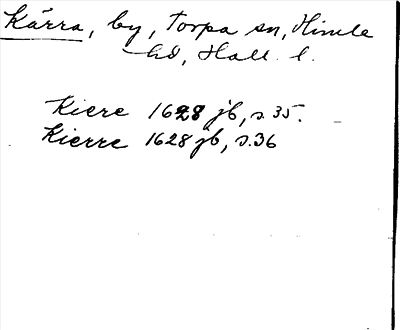 Kärra, by, Torpa sn, Himle
hd, Hall. l.
Kiere 1628 jb, s. 35.
Kierre 1628 jb, s. 36